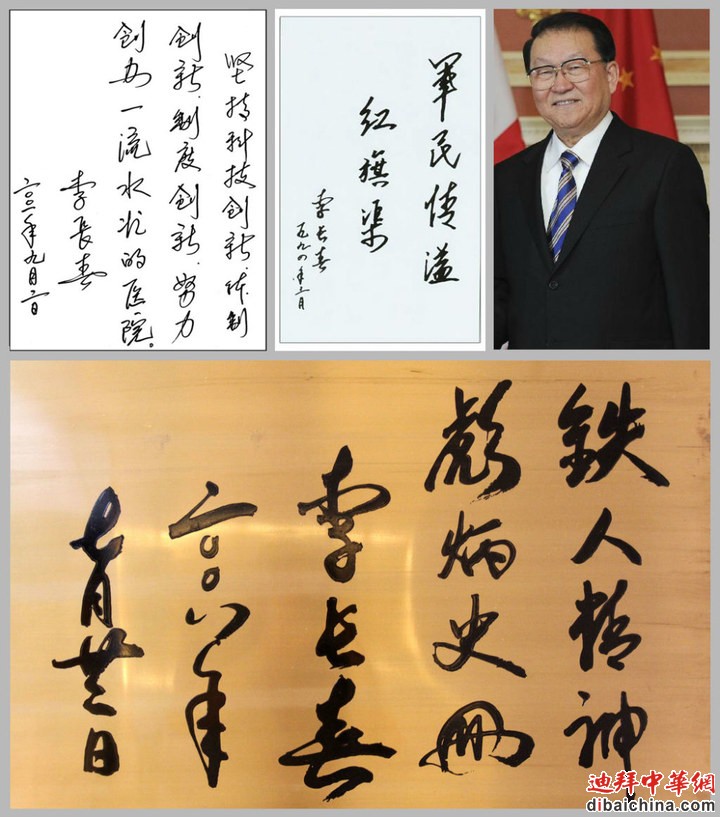 坚持科技创新、体制
创新、制度创新、努力
创办一流水准的医院。
李长春
二〇〇二年九月二日
军民情溢
红旗渠
李长春
一九九四年三月
鉄人精神
彪炳史册
李长春
二〇〇八年
七月廿三日
迪拜中華網
dibaichina.com